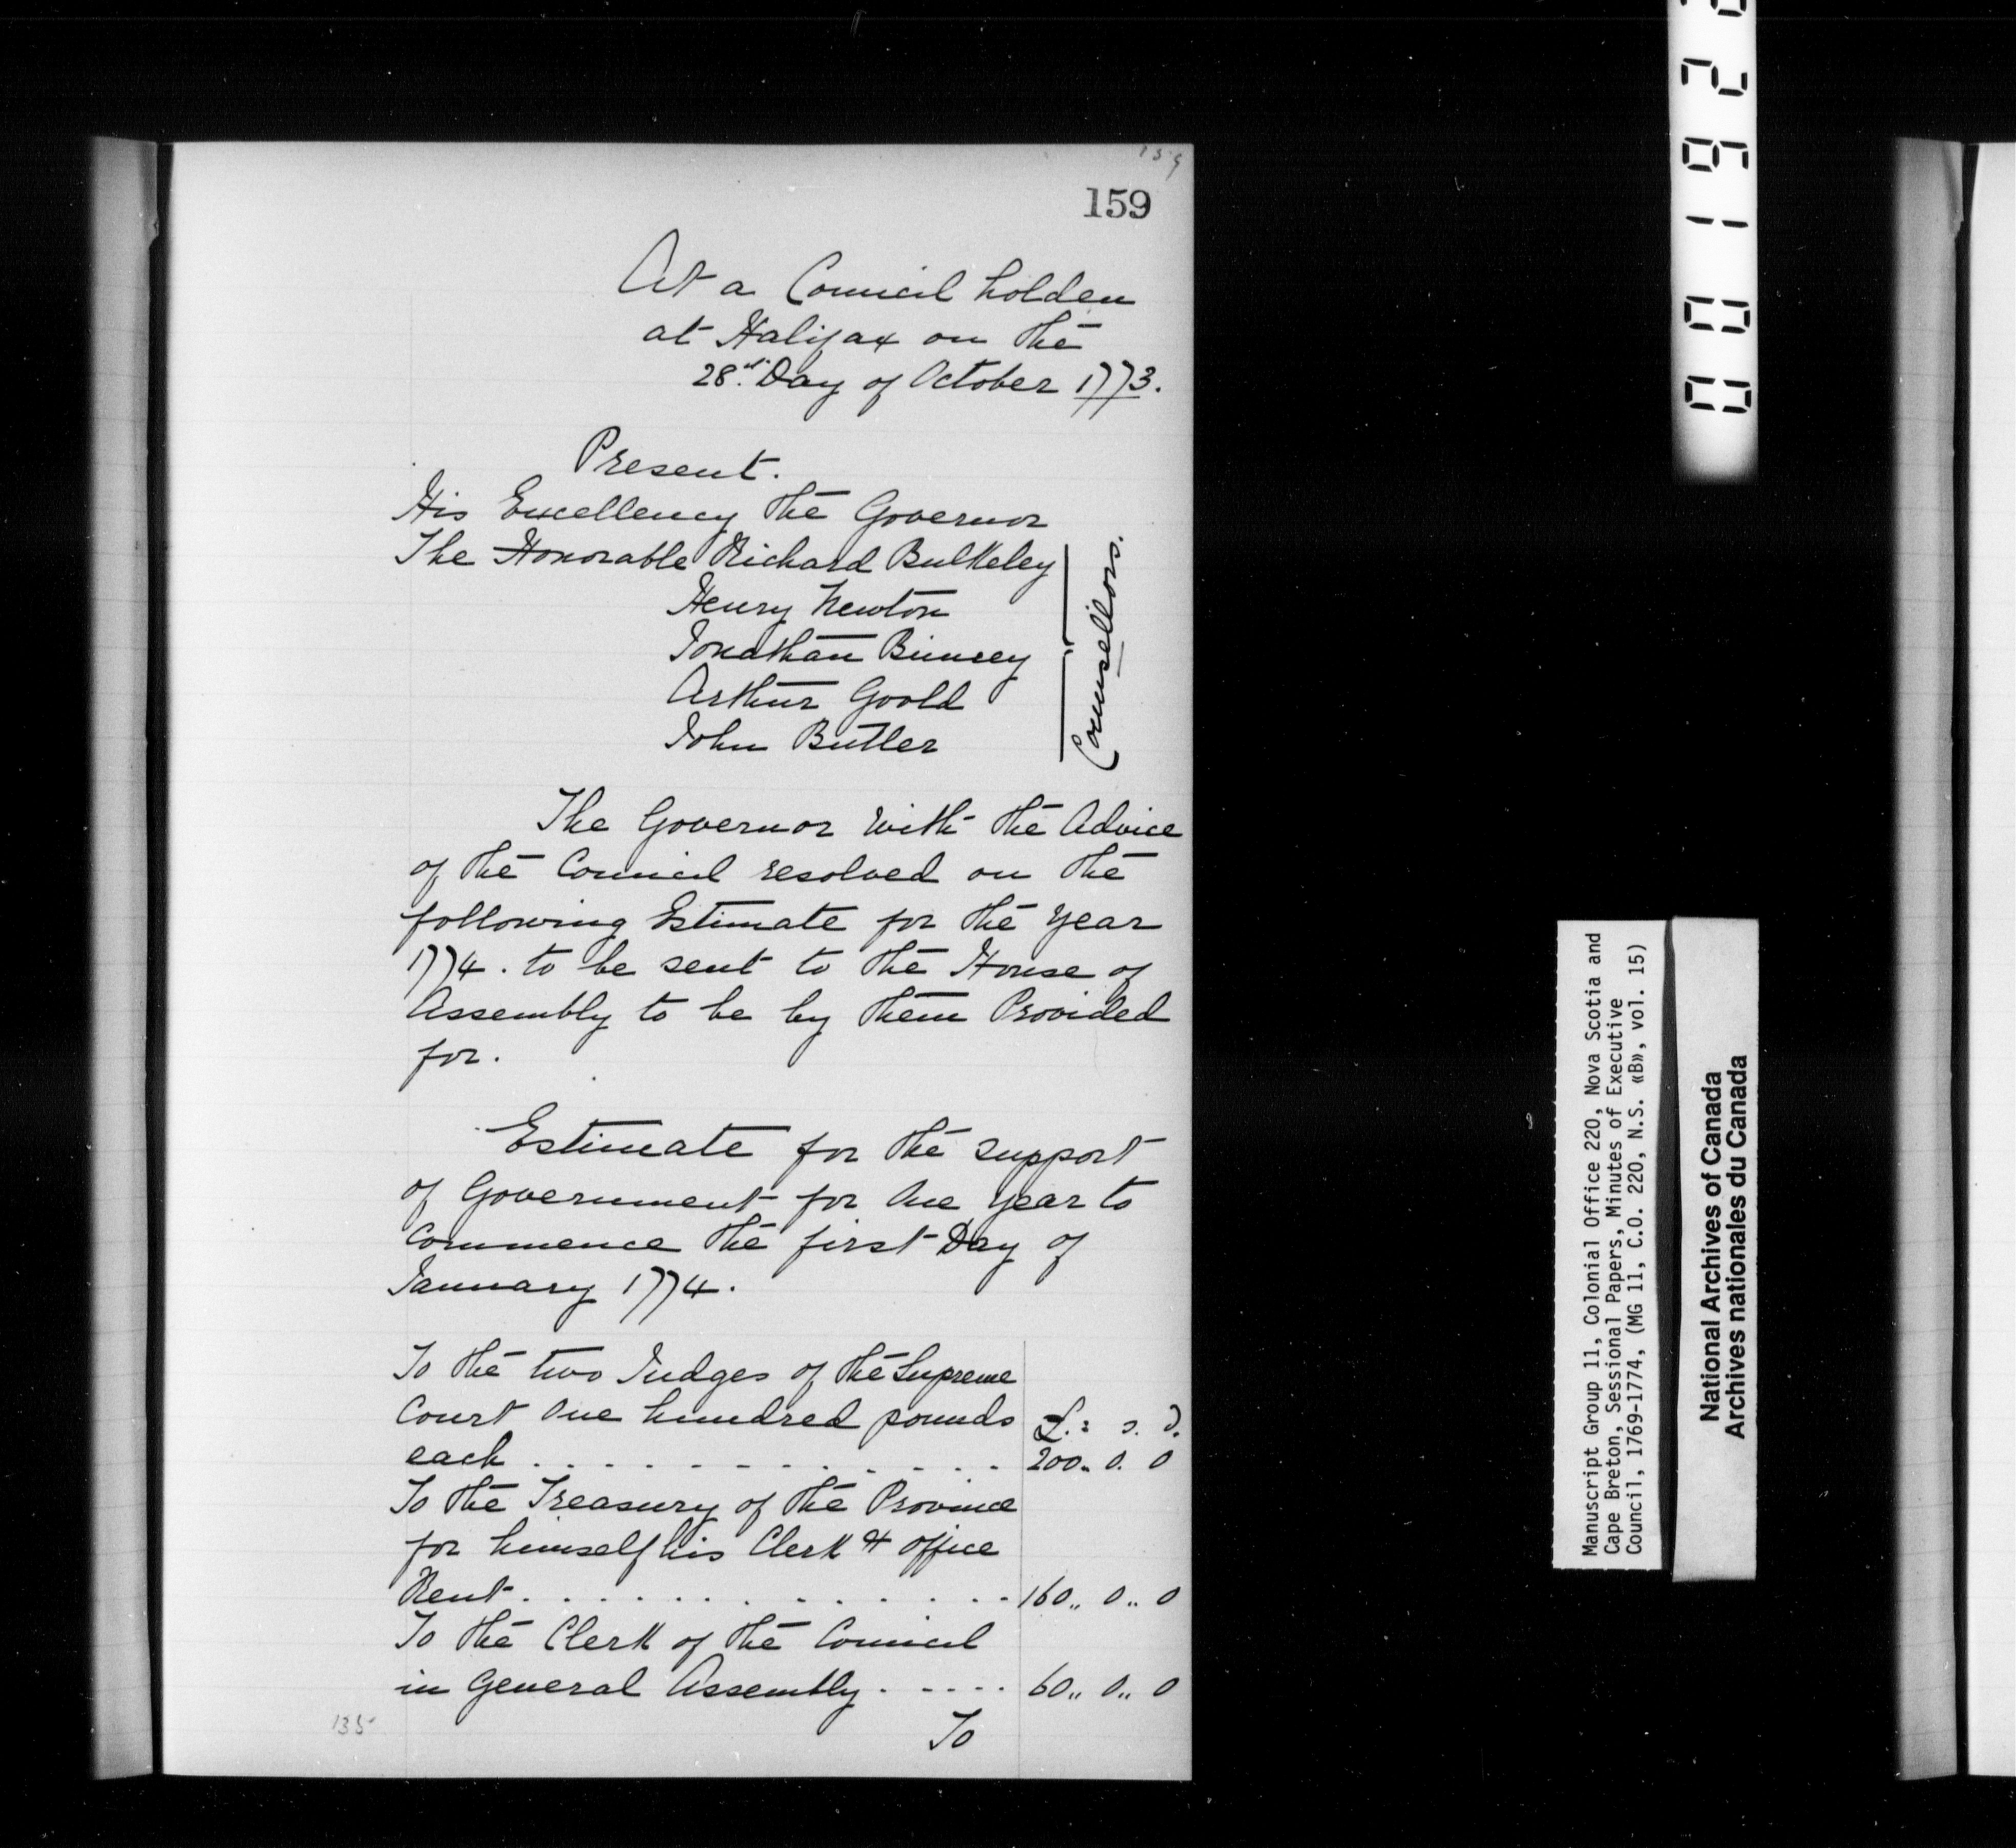 159
159
At a Council holden
at Halifax on the
28th Day of October 1773.
Present.
His Excellency the Governor
The Honorable Richard Bulkeley
Henry Newton
Jonathan Binney
Arthur Goold
John Butler
Counsellors.
The Governor with the Advice
of the Council resolved on the
following Estimate for the year
1774. to be sent to the House of
Assembly to be by them Provided
for.
Estimate for the support
of Government for One year to
Commence the first Day of
January 1774.
To the two Judges of the Supreme
Court One hundred pounds £. s. d.
each . . . . . . . . . . . . 200. 0. 0
To the Treasury of the Province
for himself his Clerk & office
Rent . . . . . . . . . . . . 160,, 0,, 0
To the Clerk of the Council
in General Assembly . . . . . 60,, 0,, 0
To
135
Manuscript Group 11, Colonial Office 220, Nova Scotia and
Cape Breton, Sessional Papers, Minutes of Executive
Council, 1769-1774, (MG 11, C.O. 220, N.S. «B», vol. 15)
National Archives of Canada
Archives nationales du Canada